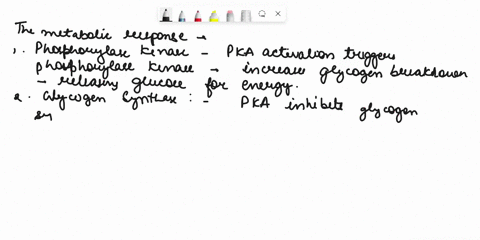 The metabolic response →
1. Phosphorylase kinase - PKA activation triggers
phosphorylase kinase → increase glycogen breakdown
→ releasing glucose for energy.
2. Glycogen Synthex : - PKA inhibits glycogen
sy